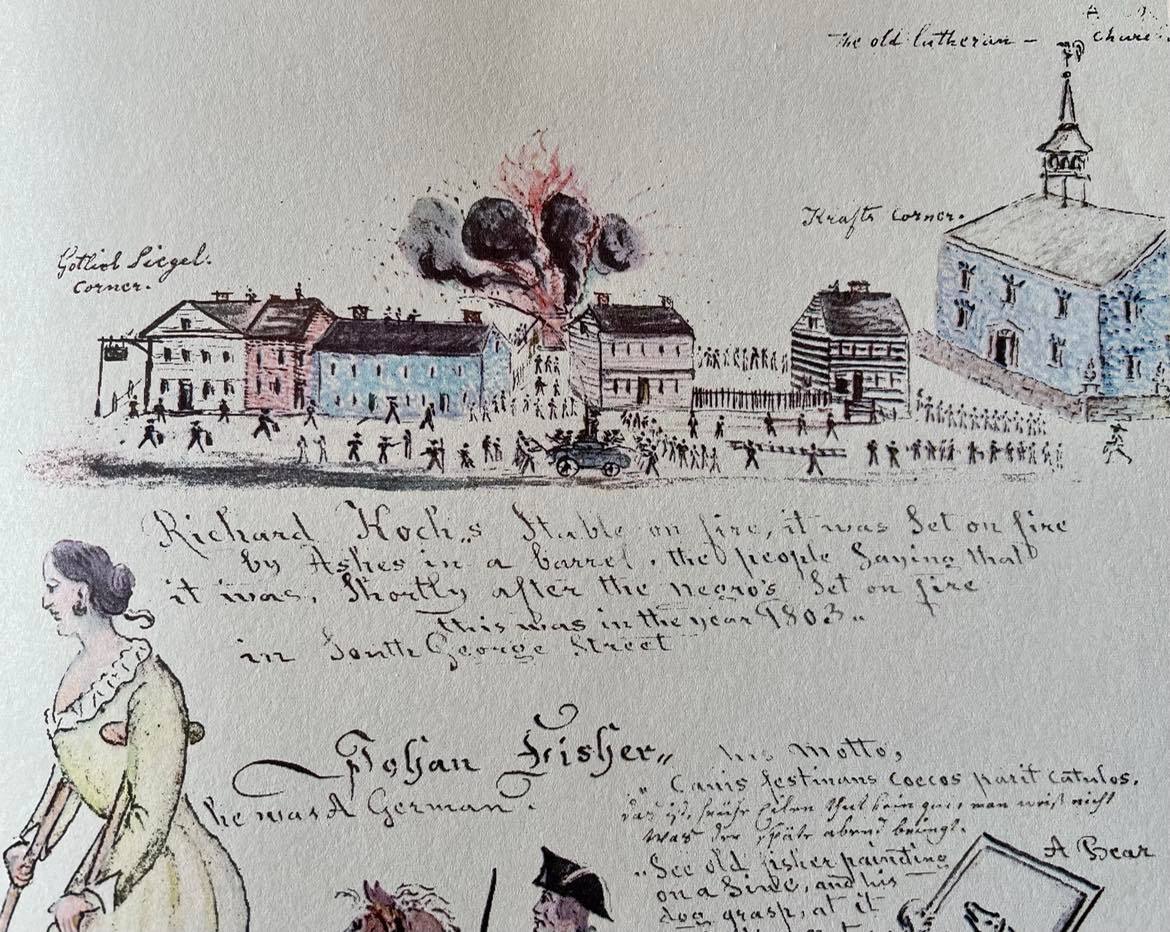 The old lutheran –
Krafts Corner.
Gotlieb Siegel.
Corner.
Richard Koch,,s Stable on fire, it was Set on fire
by Ashes in a barrel, the people Saying that
it was, Shortly after the negro's Set on fire
this was in the year 1803 „
in South George Street
Johan Fisher „
he was A German.
his Motto,
„ Canis festinans coecos parit catulos.
das ist, frühe Eilen thut kein gut, man weiß nicht
was der späte abend bringt.
„ See old fisher painting
on a Sine, and his
dog grasp, at it
A Bear